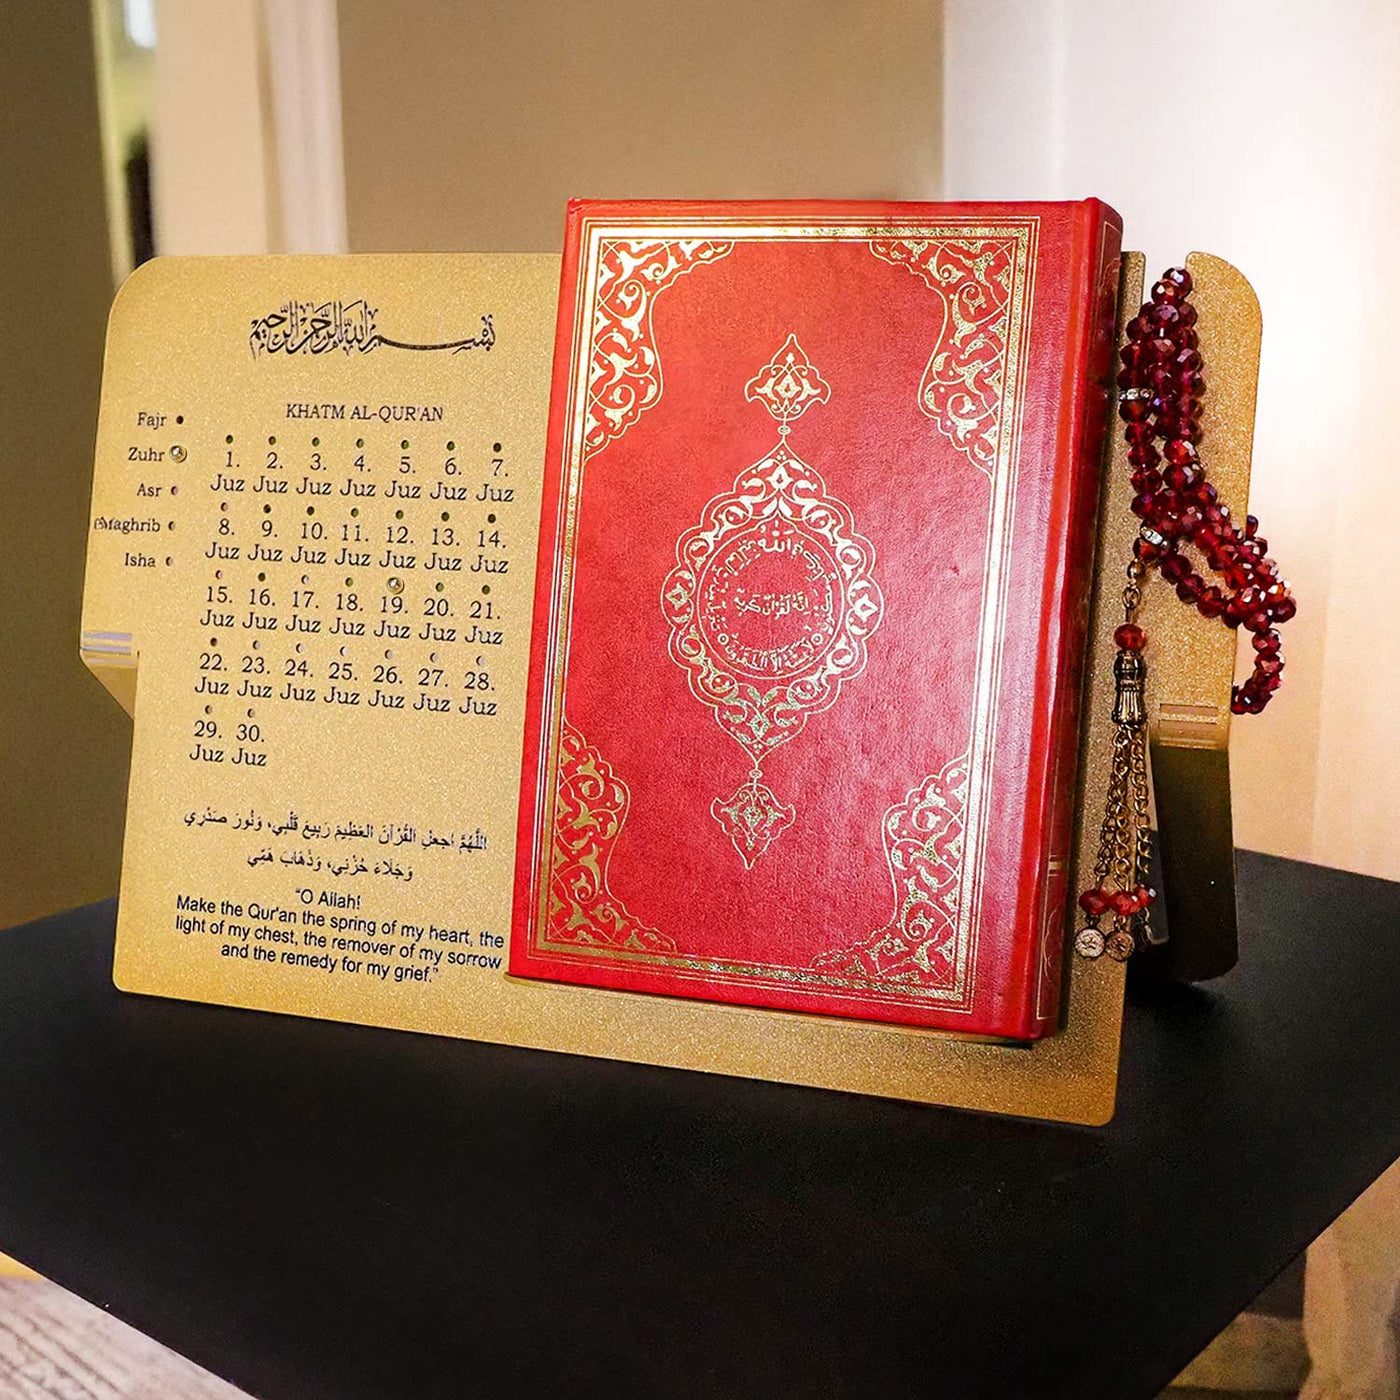 بسم الله الرحمن الرحيم
KHATM AL-QUR'AN
Fajr
Zuhr
Asr
Maghrib
Isha
1. 2. 3. 4. 5. 6. 7.
Juz Juz Juz Juz Juz Juz Juz
8. 9. 10. 11. 12. 13. 14.
Juz Juz Juz Juz Juz Juz Juz
15. 16. 17. 18. 19. 20. 21.
Juz Juz Juz Juz Juz Juz Juz
22. 23. 24. 25. 26. 27. 28.
Juz Juz Juz Juz Juz Juz Juz
29. 30.
Juz Juz
اللَّهُمَّ اجعل القُرْآنَ العَظِيمَ رَبِيعَ قَلْبِي، وَنُورَ صَدْرِي
وَجَلَاءَ حُزْنِي، وَذَهَابَ هَمِّي
“O Allah!
Make the Qur'an the spring of my heart, the
light of my chest, the remover of my sorrow
and the remedy for my grief.”
الله
إنه لقرآن كريم